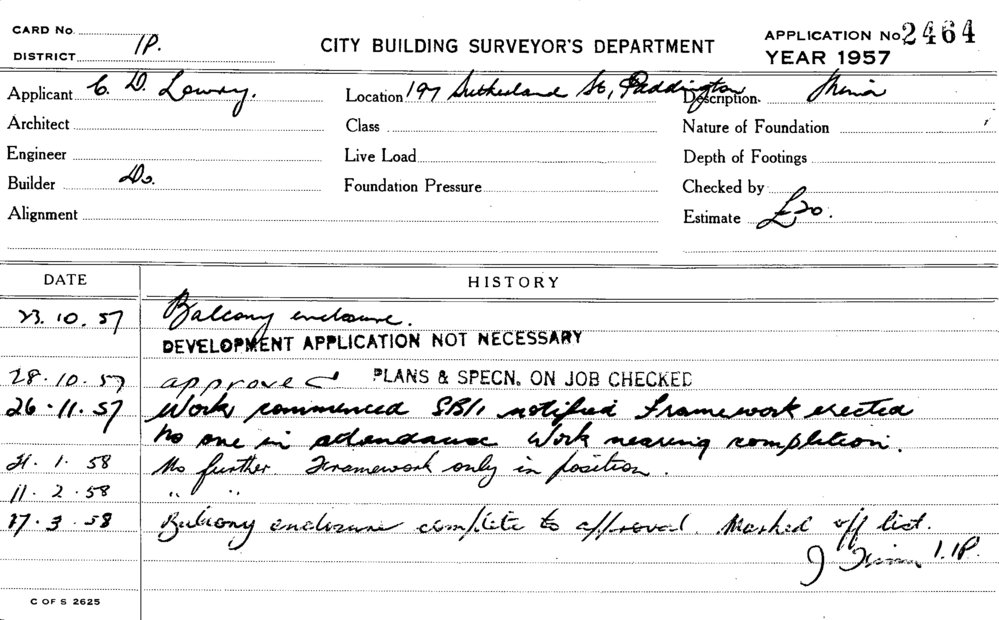 CARD No.
DISTRICT 1P.
CITY BUILDING SURVEYOR'S DEPARTMENT
APPLICATION No 2464
YEAR 1957
Applicant C. D. Lowry. Location 197 Sutherland St, Paddington Description. Minor
Architect Class Nature of Foundation
Engineer Live Load Depth of Footings
Builder Do. Foundation Pressure Checked by
Alignment Estimate £20.
DATE HISTORY
23.10.57 Balcony enclosure.
DEVELOPMENT APPLICATION NOT NECESSARY
28.10.57 approved PLANS & SPECN. ON JOB CHECKED
26.11.57 Work commenced SB1, notified Framework erected
No one in attendance Work nearing completion.
21.1.58 No further Framework only in position.
11.2.58 " "
17.3.58 Balcony enclosure complete to approval. Marked off list.
J 1.1P.
C OF S 2625